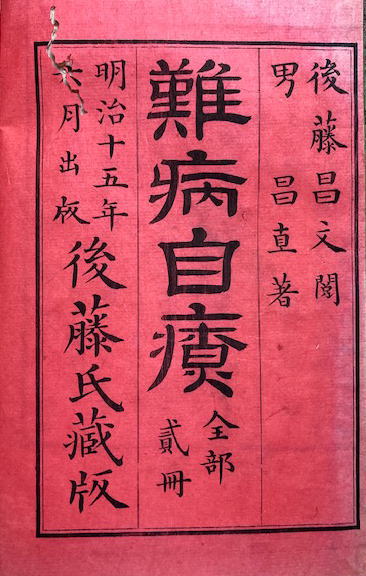 後藤昌文閲
男 昌直著
難病自療
全部
貳冊
明治十五年
六月出版
後藤氏藏版